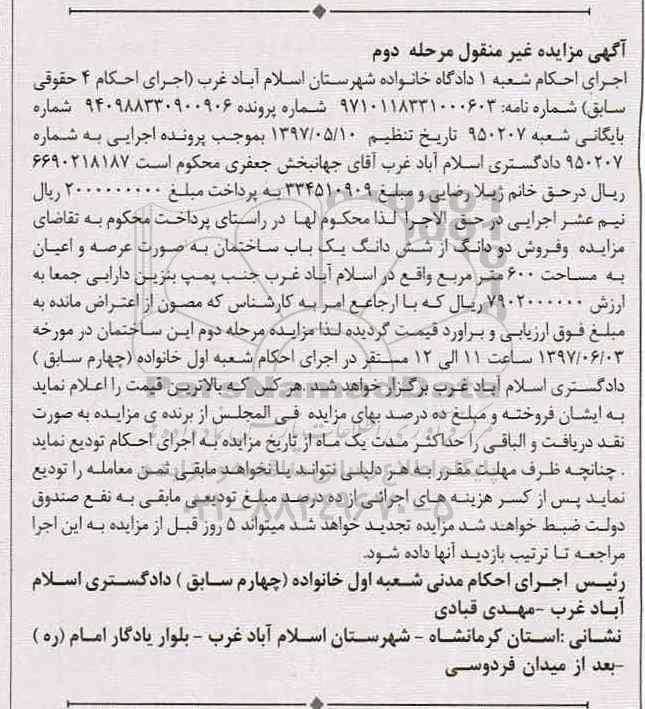 آگهی مزایده غیر منقول مرحله دوم
اجرای احکام شعبه ۱ دادگاه خانواده شهرستان اسلام آباد غرب (اجرای احکام ۴ حقوقی
سابق) شماره نامه: ۹۷۱۰۱۱۸۳۳۱۰۰۰۶۰۳ شماره پرونده ۹۴۰۹۸۸۳۳۰۹۰۰۹۰۶ شماره
بایگانی شعبه ۹۵۰۲۰۷ تاریخ تنظیم ۱۳۹۷/۰۵/۱۰ بموجب پرونده اجرایی به شماره
۹۵۰۲۰۷ دادگستری اسلام آباد غرب آقای جهانبخش جعفری محکوم است ۶۶۹۰۲۱۸۱۸۷
ریال درحق خانم ژیلا رضایی و مبلغ ۳۳۴۵۱۰۹۰۹ به پرداخت مبلغ ۲۰۰۰۰۰۰۰۰۰ ریال
نیم عشر اجرایی در حق الاجرا لذا محکوم لها در راستای پرداخت محکوم به تقاضای
مزایده وفروش دو دانگ از شش دانگ یک باب ساختمان به صورت عرصه و اعیان
به مساحت ۶۰۰ متر مربع واقع در اسلام آباد غرب جنب پمپ بنزین دارایی جمعا به
ارزش ۷۹۰۲۰۰۰۰۰۰ ریال که با ارجاع امر به کارشناس که مصون از اعتراض مانده به
مبلغ فوق ارزیابی و براورد قیمت گردیده لذا مزایده مرحله دوم این ساختمان در مورخه
۱۳۹۷/۰۶/۰۳ ساعت ۱۱ الی ۱۲ مستقر در اجرای احکام شعبه اول خانواده (چهارم سابق )
دادگستری اسلام آباد غرب برگزار خواهد شد .هر کس که بالاترین قیمت را اعلام نماید
به ایشان فروخته و مبلغ ده درصد بهای مزایده فی المجلس از برنده ی مزایده به صورت
نقد دریافت و الباقی را حداکثر مدت یک ماه از تاریخ مزایده به اجرای احکام تودیع نماید
. چنانچه ظرف مهلت مقرر به هر دلیلی نتواند یا نخواهد مابقی ثمن معامله را تودیع
نماید پس از کسر هزینه های اجرائی از ده درصد مبلغ تودیعی مابقی به نفع صندوق
دولت ضبط خواهد شد مزایده تجدید خواهد شد میتواند ۵ روز قبل از مزایده به این اجرا
مراجعه تا ترتیب بازدید آنها داده شود.
رئیس اجرای احکام مدنی شعبه اول خانواده (چهارم سابق ) دادگستری اسلام
آباد غرب -مهدی قبادی
نشانی :استان کرمانشاه - شهرستان اسلام آباد غرب - بلوار یادگار امام (ره )
-بعد از میدان فردوسی
ParsNamadData
۰۲۱-۸۸۳۴۹۶۷۰-۵